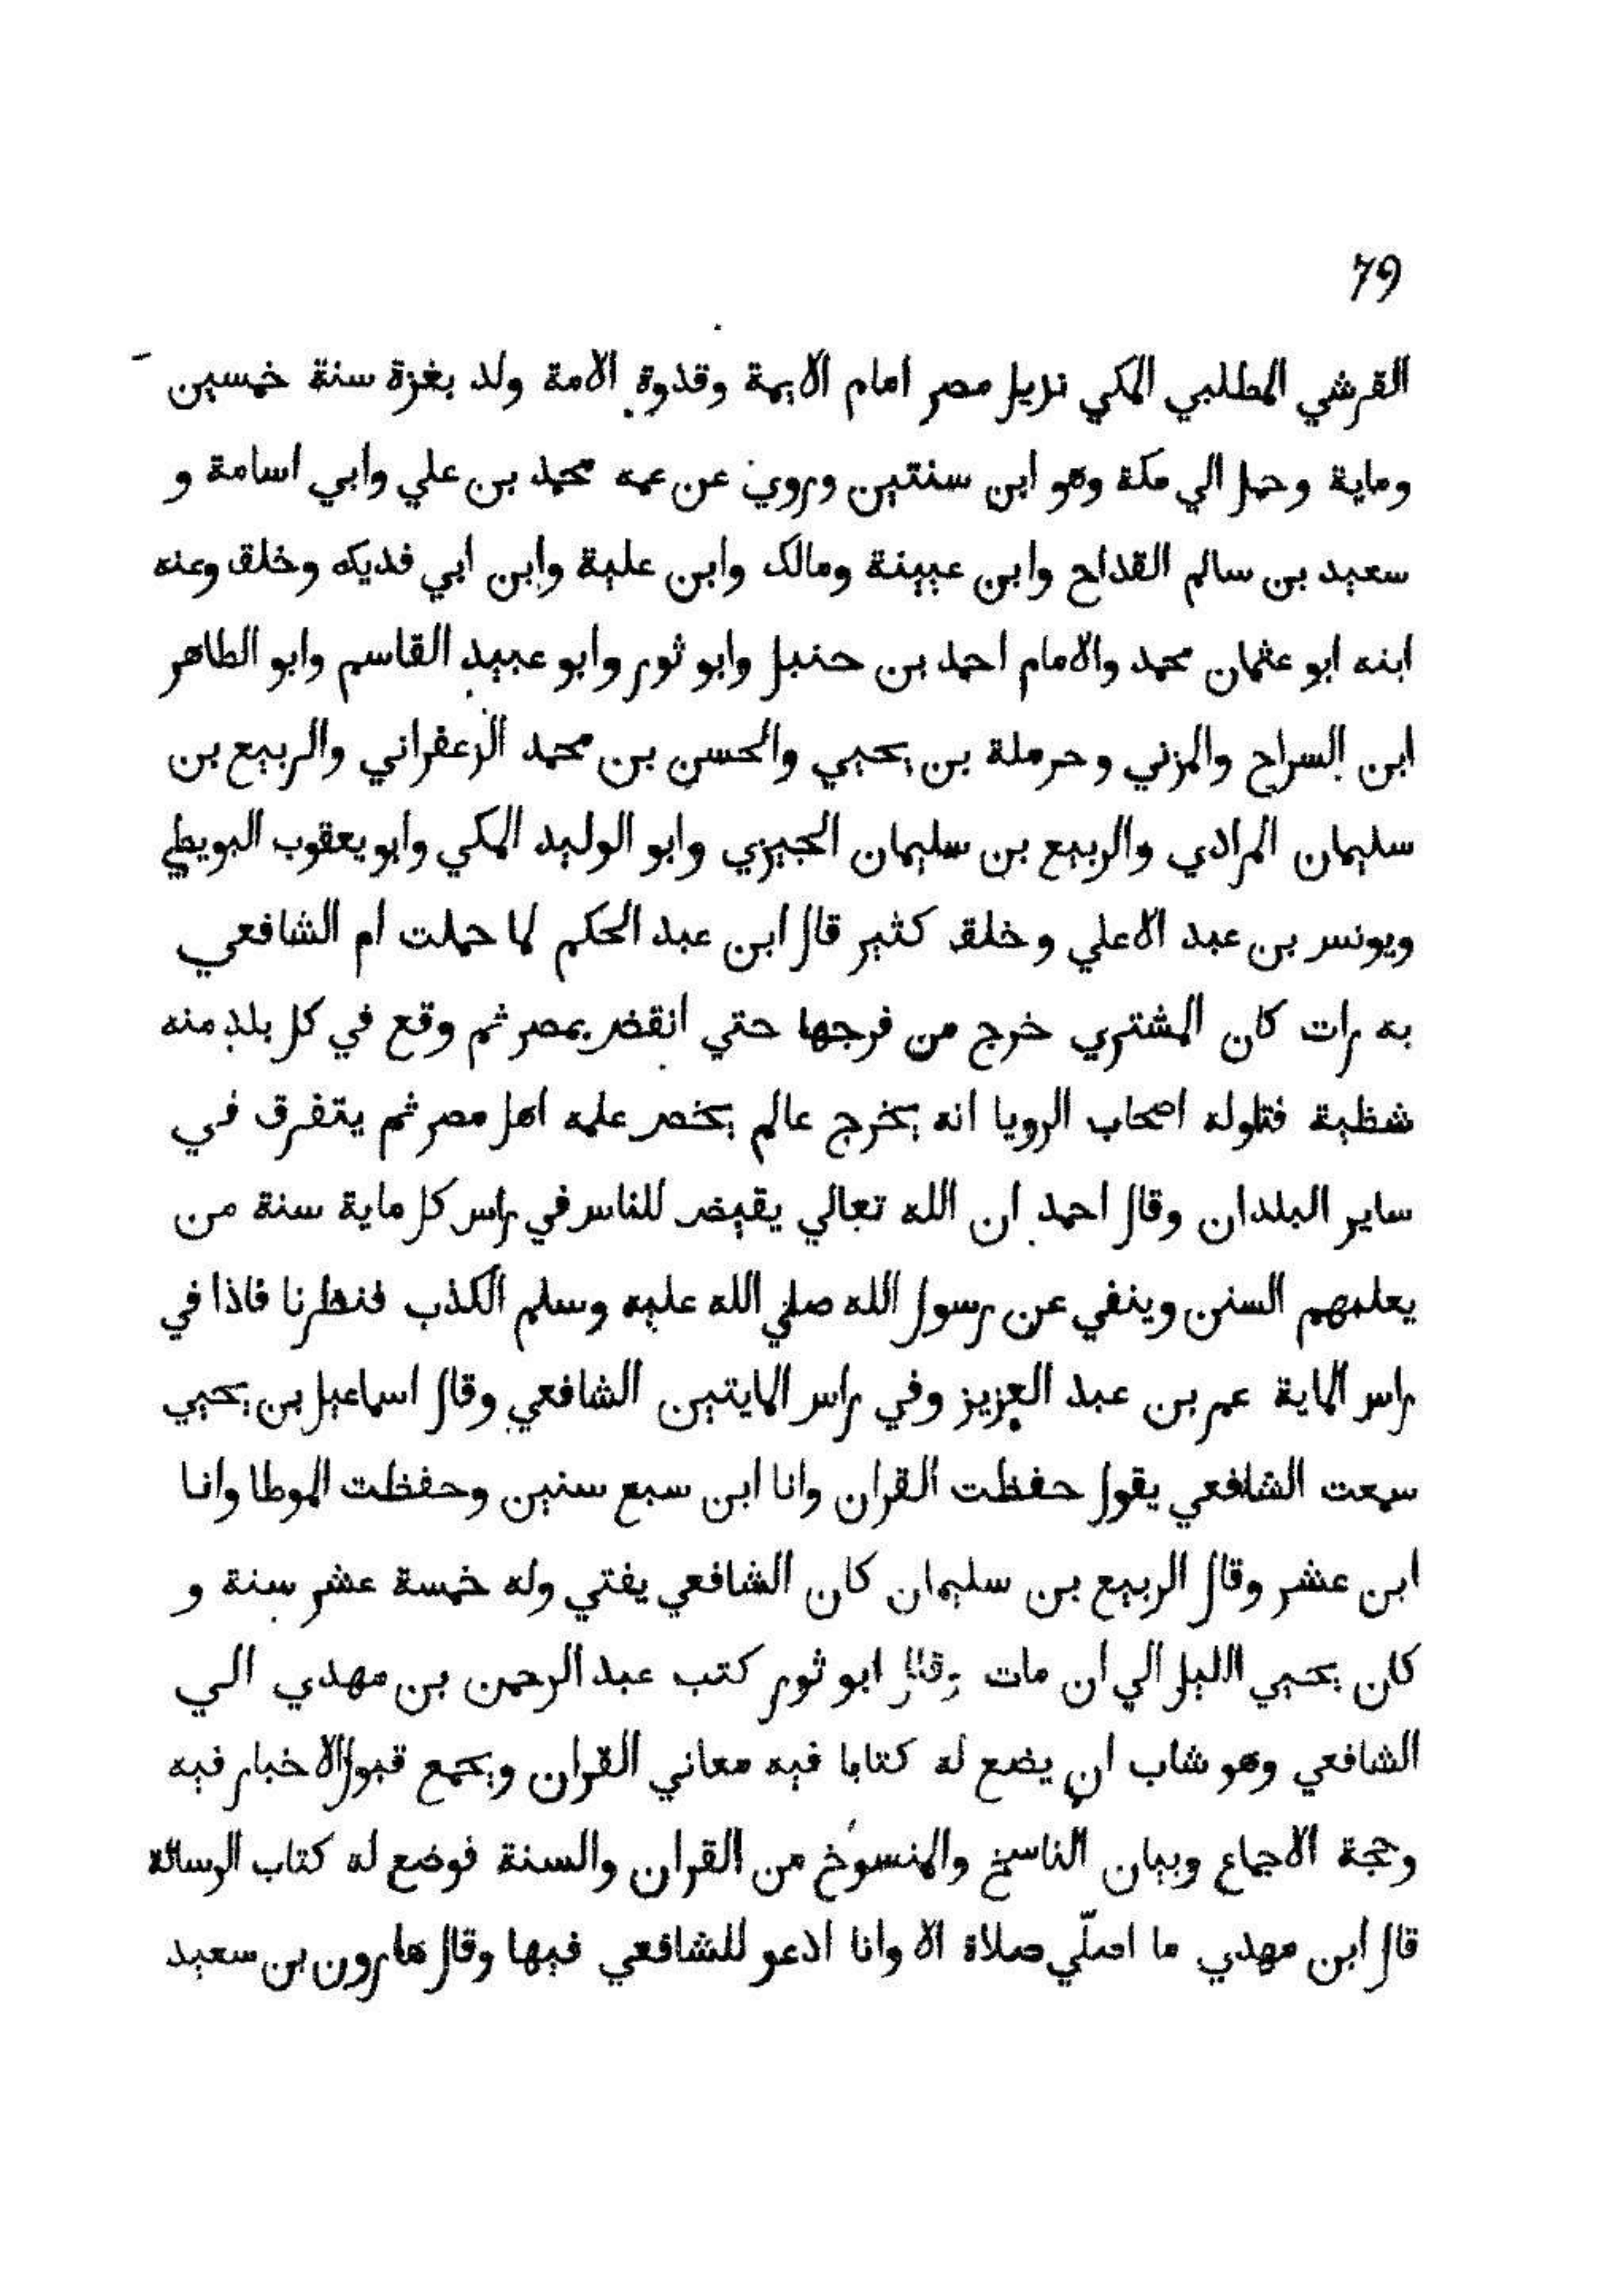 79
القرشي المطلبي المكي نزيل مصر امام الايمة وقدوة الامة ولد بغزة سنة خمسين
وماية وحمل الي مكة وهو ابن سنتين وروي عن عمه محمد بن علي وابي اسامة و
سعيد بن سالم القداح وابن عيينة ومالك وابن علية وابن ابي فديك وخلق وعنه
ابنه ابو عثمان محمد والامام احمد بن حنبل وابو ثور وابو عبيد القاسم وابو الطاهر
ابن السراح والمزني وحرملة بن يحيي والحسن بن محمد الزعفراني والربيع بن
سليمان المرادي والربيع بن سليمان الجيزي وابو الوليد المكي وابو يعقوب البويطي
ويونس بن عبد الاعلي وخلق كثير قال ابن عبد الحكم لما حملت ام الشافعي
به رات كان المشتري خرج من فرجها حتي انقض بمصر ثم وقع في كل بلد منه
شظية فتاوله اصحاب الرويا انه يخرج عالم يخصر علمه اهل مصر ثم يتفرق في
ساير البلدان وقال احمد ان الله تعالي يقيض للناس في راس كل ماية سنة من
يعلمهم السنن وينفي عن رسول الله صلي الله عليه وسلم الكذب فنظرنا فاذا في
راس الماية عمر بن عبد العزيز وفي راس المايتين الشافعي وقال اسماعيل بن يحيي
سمعت الشافعي يقول حفظت القران وانا ابن سبع سنين وحفظت الموطا وانا
ابن عشر وقال الربيع بن سليمان كان الشافعي يفتي وله خمسة عشر سنة و
كان يحيي الليل الي ان مات وقال ابو ثور كتب عبد الرحمن بن مهدي الي
الشافعي وهو شاب ان يضع له كتابا فيه معاني القران ويجمع قبول الاخبار فيه
وحجة الاجماع وبيان الناسخ والمنسوخ من القران والسنة فوضع له كتاب الرسالة
قال ابن مهدي ما اصلّي صلاة الا وانا ادعو للشافعي فيها وقال هارون بن سعيد